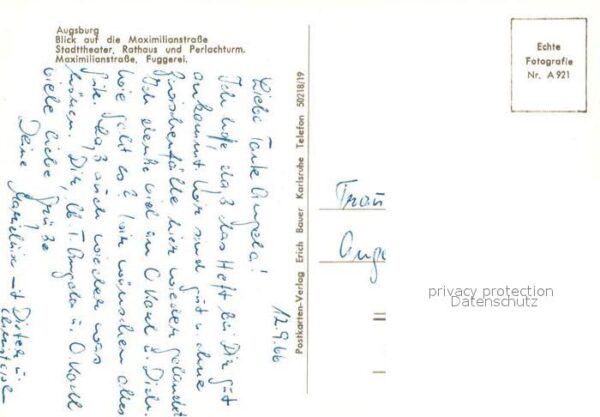 Augsburg
Blick auf die Maximilianstraße
Stadttheater, Rathaus und Perlachturm.
Maximilianstraße, Fuggerei.
Echte
Fotografie
Nr. A 921
Postkarten-Verlag Erich Bauer Karlsruhe Telefon 50218/19
12.9.66
Liebe Tante Angela!
Ich hoffe, daß das Heft bei Dir gut
ankommt. Wir sind gut u. ohne
Zwischenfälle hier wieder gelandet.
Ich denke viel an O. Karl u. Dich.
Wie geht es? Wir wünschen alles
Gute. Laß auch wieder was
hören. Dir, lb. T. Angela u. O. Karl
viele liebe Grüße
Deine
mit Dieter u.
Frau
Ange
privacy protection
Datenschutz